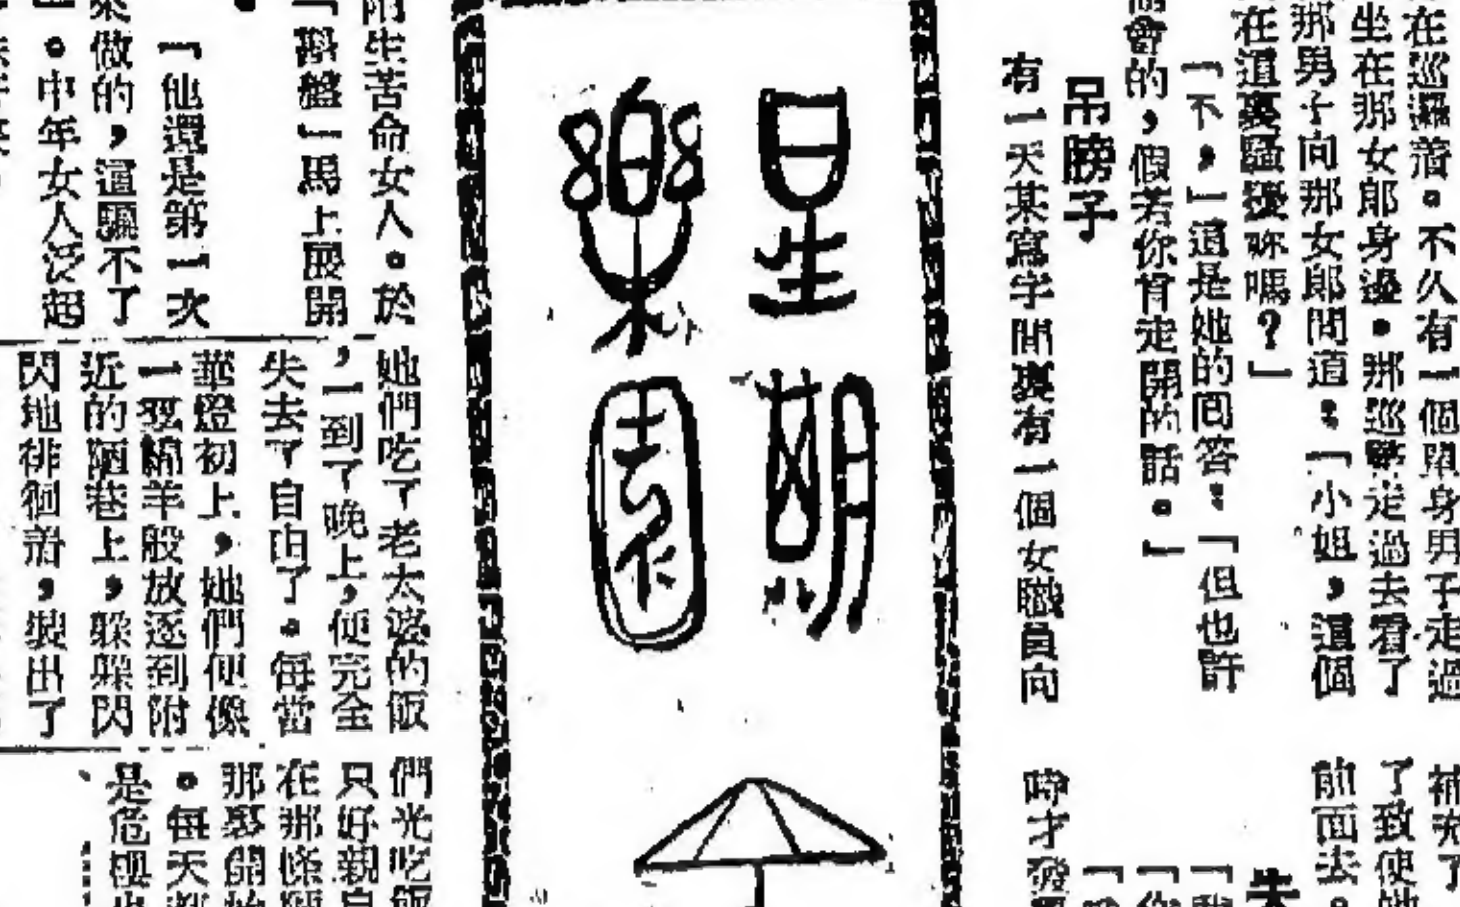 在巡邏着。不久有一個單身男子走過
坐在那女郎身邊。那巡警走過去看了
那男子向那女郎問道：「小姐，這個
在這裏騷擾你嗎？」
「不，」這是她的回答：「但也許
會的，假若你肯走開的話。」
吊膀子
有一天某寫字間裏有一個女職員向
補充了
了致使她
前面去。
「我
「你
時才發
星期
樂園
附生苦命女人。於
」馬上展開
「他還是第一次
來做的，這騙不了
。中年女人泛起
她們吃了老太婆的飯
，一到了晚上，便完全
失去了自由了。每當
華燈初上，她們便像
一羣綿羊般放逐到附
近的陋巷上，躲躲閃
閃地徘徊着，裝出了
們光吃飯
只好親自
在那條陋
那裏開始
。每天都
是危樓也